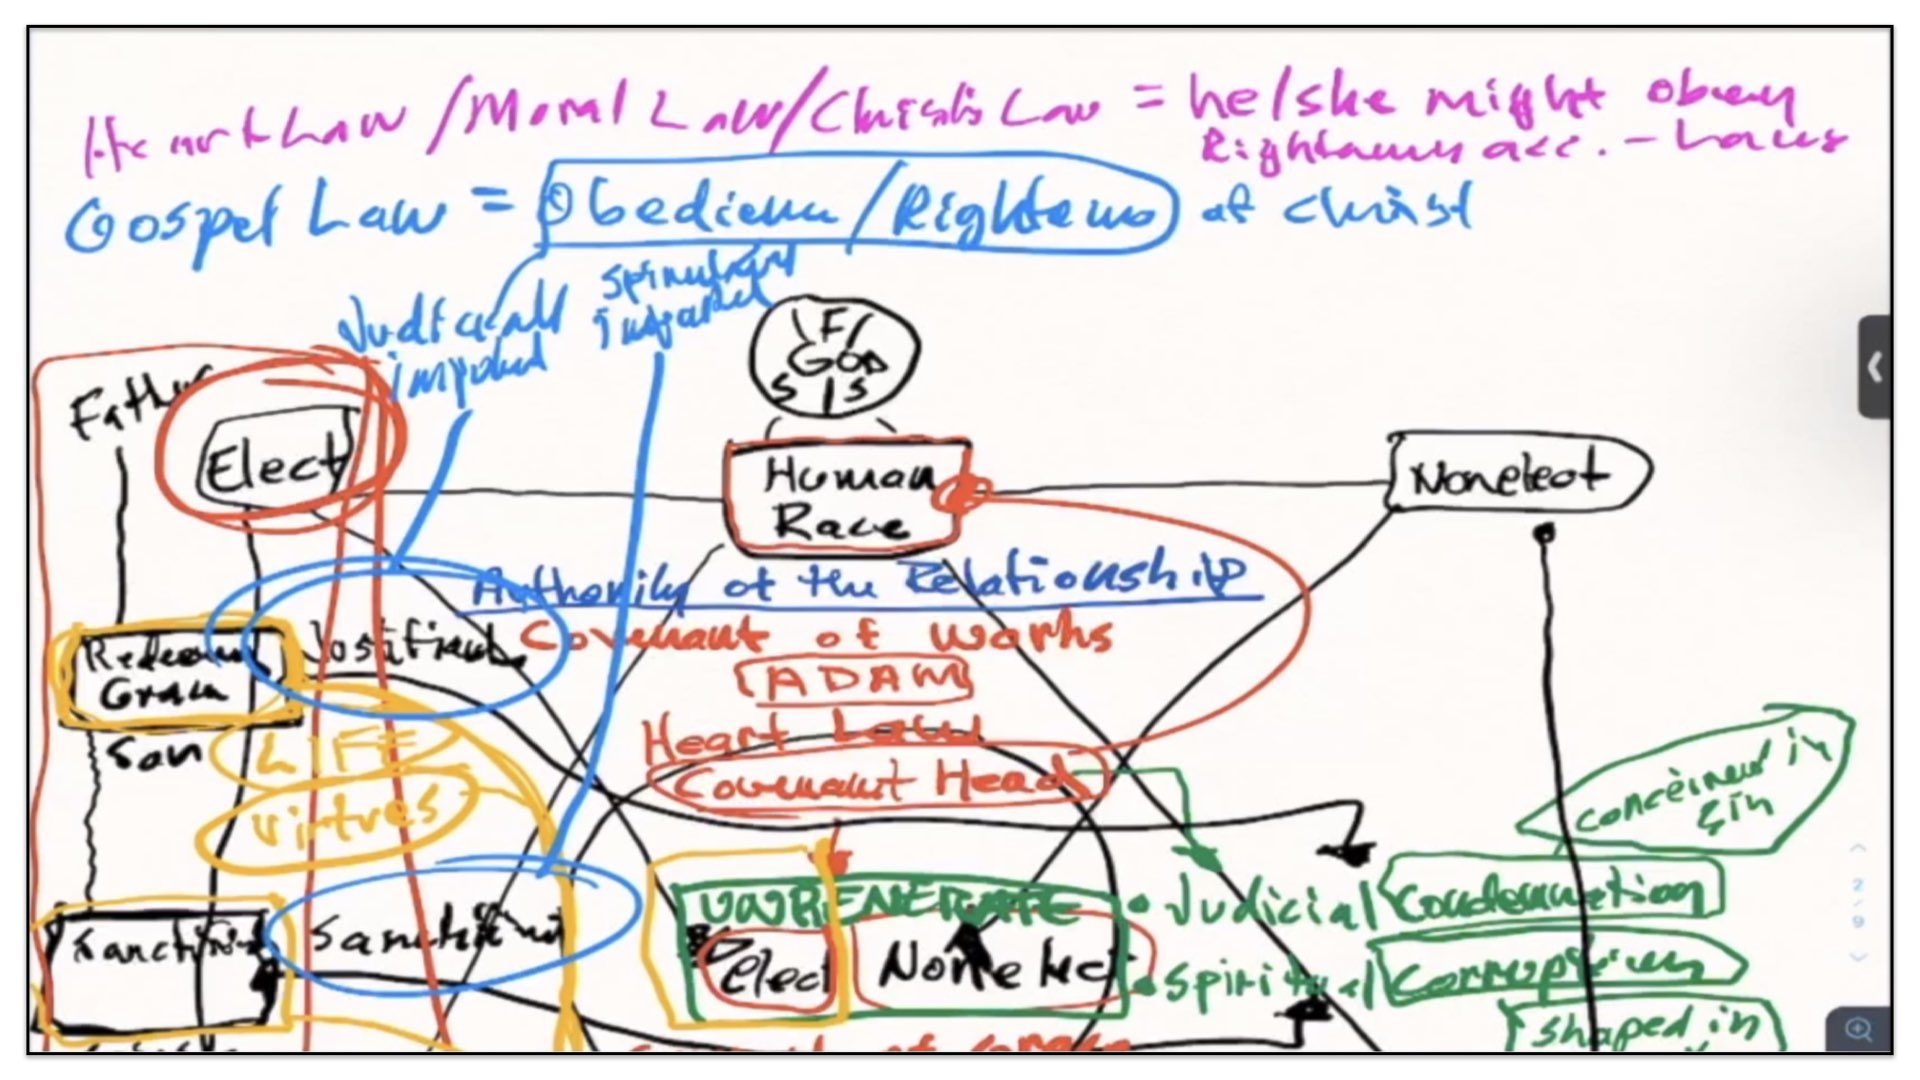 Heart Law / Moral Law / Christ's Law = he/she might obey
Righteous acc. - Laws
Gospel Law = Obedience / Righteous of Christ
Judicially
imputed
spiritually
imparted
F
GOD
S S
Father
Elect
Human
Race
Nonelect
Authority of the Relationship
Covenant of Works
ADAM
Heart Law
Covenant Head
Grace
Son
LIFE
Virtues
conceived in
sin
UNREGENERATE
Elect
Nonelect
• Judicial Condemnation
• Spiritual Corruption
shaped in
2/9